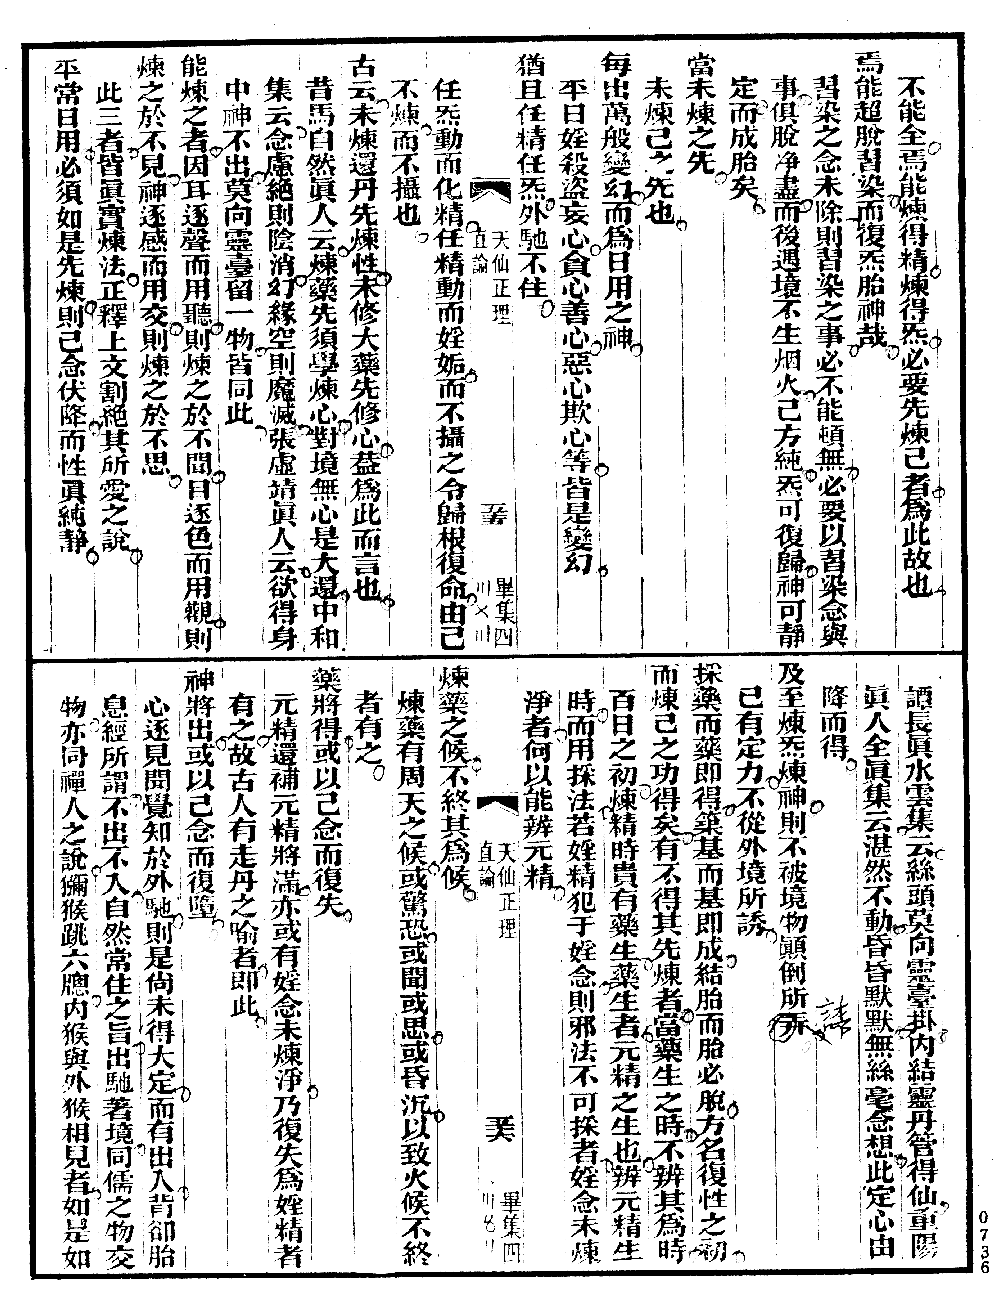 不能全焉能煉得精煉得炁必要先煉己者爲此故也
焉能超脫習染而復炁胎神哉
習染之念未除則習染之事必不能頓無必要以習染念與
事俱脫淨盡而後遇境不生烟火己方純炁可復歸神可靜
定而成胎矣
當未煉之先
未煉己之先也
每出萬般變幻而爲日用之神
平日婬殺盜妄心貪心善心惡心欺心等皆是變幻
猶且任精任炁外馳不住
天仙正理
直論
畢集四
任炁動而化精任精動而婬姤而不攝之令歸根復命由己
不煉而不攝也
古云未煉還丹先煉性未修大藥先修心葢爲此而言也
昔馬自然眞人云煉藥先須學煉心對境無心是大還中和
集云念慮絕則陰消幻緣空則魔滅張虛靖眞人云欲得身
中神不出莫向靈臺留一物皆同此
能煉之者因耳逐聲而用聽則煉之於不聞目逐色而用觀則
煉之於不見神逐感而用交則煉之於不思
此三者皆眞實煉法正釋上文割絕其所愛之說
平常日用必須如是先煉則己念伏降而性眞純靜
譚長眞水雲集云絲頭莫向靈臺掛內結靈丹管得仙重陽
眞人全眞集云湛然不動昏昏默默無絲毫念想此定心由
降而得
及至煉炁煉神則不被境物顛倒所弄
己有定力不從外境所誘
採藥而藥即得築基而基即成結胎而胎必脫方名復性之初
而煉己之功得矣有不得其先煉者當藥生之時不辨其爲時
百日之初煉精時貴有藥生藥生者元精之生也辨元精生
時而用採法若婬精犯于婬念則邪法不可採者婬念未煉
淨者何以能辨元精
天仙正理
直論
畢集四
煉藥之候不終其爲候
煉藥有周天之候或驚恐或聞或思或昏沉以致火候不終
者有之
藥將得或以己念而復失
元精還補元精將滿亦或有婬念未煉淨乃復失爲婬精者
有之故古人有走丹之喻者即此
神將出或以己念而復墮
心逐見聞覺知於外馳則是尙未得大定而有出入背卻胎
息經所謂不出不入自然常住之旨出馳著境同儒之物交
物亦同禪人之說獼猴跳六牕內猴與外猴相見者如是如
0736